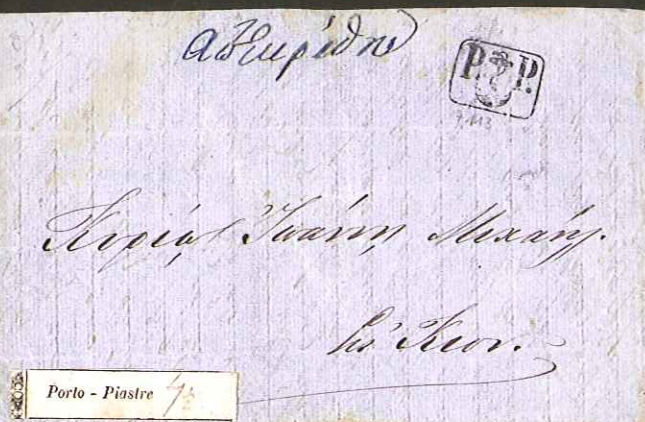 ἀπεκρίθη
P. P.
7.113
Κυρίῳ Ἰωάννῃ Μιχαήλ.
Εἰς Κίον.
Porto - Piastre